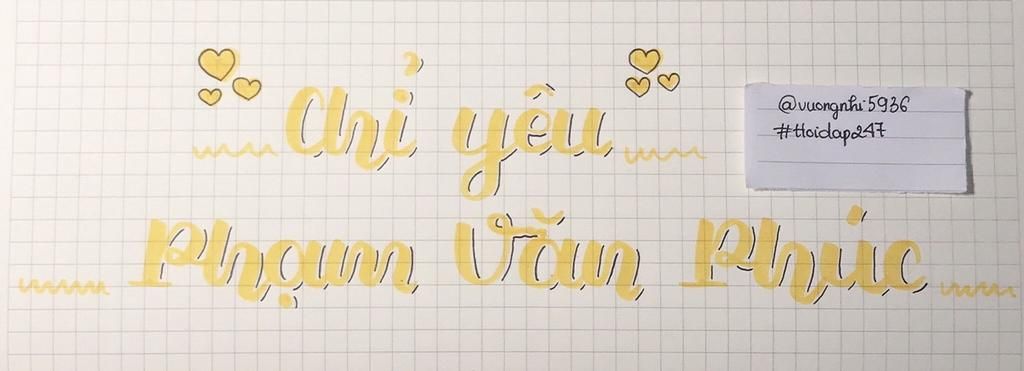 Chỉ yêu
Phạm Văn Phúc
@vuongnhi5936
#Hoidap247